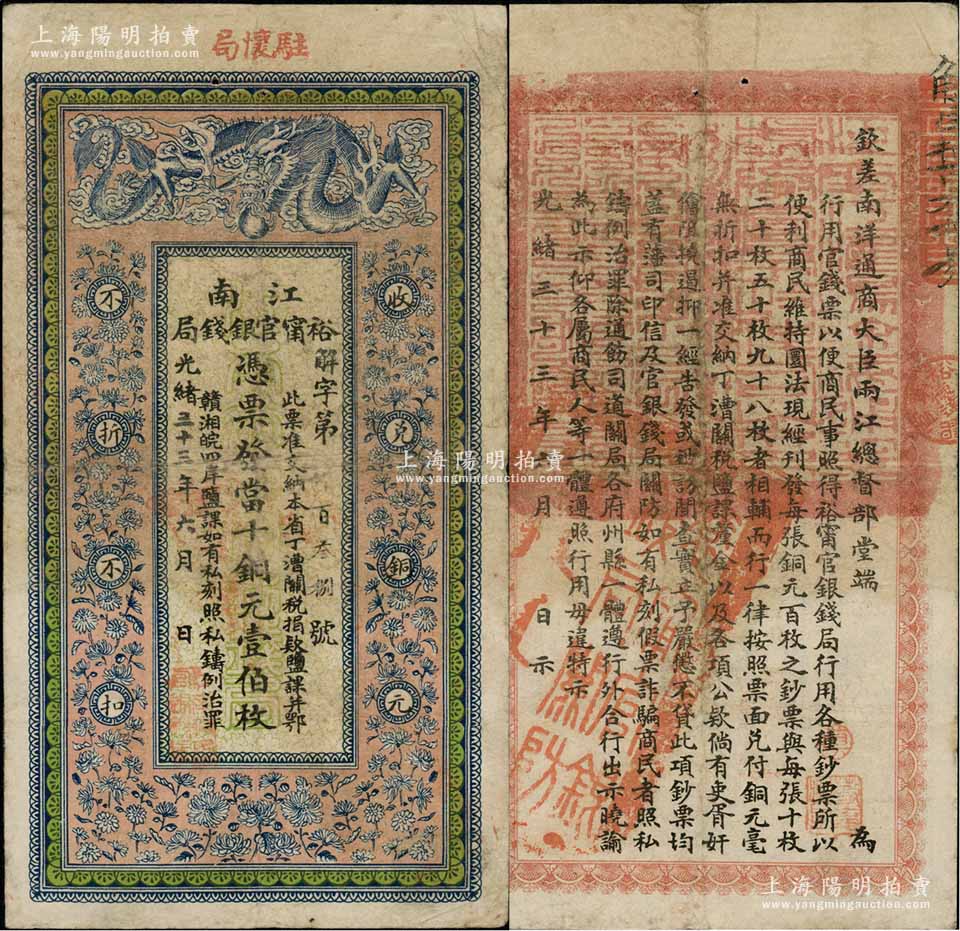 上海陽明拍賣
www.yangmingauction.com
駐懷局
江南
裕甯官銀錢局
解字第 百叁捌號
憑票發當十銅元壹伯枚
此票准交納本省丁漕關稅捐欵鹽課并鄂
贛湘皖四岸鹽課如有私刻照私鑄例治罪
光緒三十三年六月 日
收兌銅元
不折不扣
欽差南洋通商大臣兩江總督部堂端 為
行用官錢票以便商民事照得裕甯官銀錢局行用各種鈔票所以
便利商民維持圜法現經刊發每張銅元百枚之鈔票與每張十枚
二十枚五十枚九十八枚者相輔而行一律按照票面兌付銅元毫
無折扣并准交納丁漕關稅鹽課釐金以及各項公欵倘有吏胥奸
儈阻撓遏抑一經告發或抄訪聞查實立予嚴懲不貸此項鈔票均
蓋有藩司印信及官銀錢局關防如有私刻假票詐騙商民者照私
鑄例治罪除通飭司道關局各府州縣一體遵行外合行出示曉諭
為此示仰各屬商民人等一體遵照行用毋違特示
光緒三十三年 月 日示
上海陽明拍賣
www.yangmingauction.com
上海陽明拍賣
www.yangmingauction.com